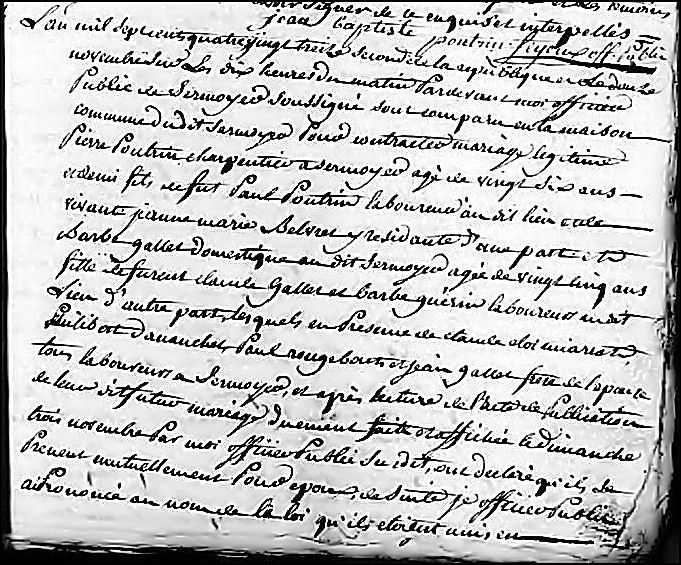 signer de ce enquis et interpellés
jean baptiste poutrin off. public
L'an mil sept cent quatre vingt treize second de la republique et le douze
novembre sur Les dix heures du matin Pardevant moi officier
Public de Sermoyer soussigné sont comparu en la maison
commune dudit Sermoyer Pour contracter mariage legitime
Pierre Poutrin charpentier a sermoyer agé de vingt six ans
et demi fils de fut Paul Poutrin laboureur au dit lieu et de
vivante jeanne marie Belvret y residante d'une part et
Barbe gallet domestique au dit Sermoyer agée de vingt cinq ans
fille de furent claude Gallet et Barbe guérin laboureurs audit
Lieu d'autre part, lesquels en Presence de claude eloi
Philibert Paul et jean gallet frere de l'epouse
tous laboureurs a Sermoyer, et après lecture de l'acte de Publication
de leur dit futur mariage duement faite et affichée le dimanche
trois novembre Par moi officier Public susdit, ont declaré qu'ils se
Prenent mutuellement Pour epoux, de suite je officier Public
ai Prononcé au nom de la loi qu'ils etoient unis en